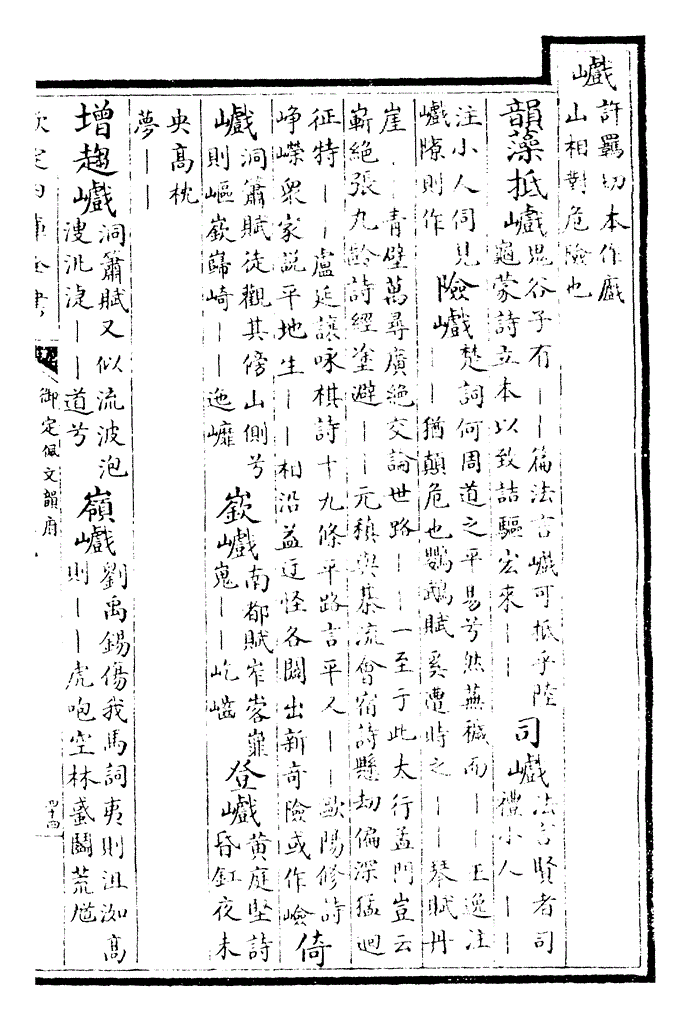 巇許羈切本作戲
山相對危險也
韻藻抵巇鬼谷子有――篇法言巇可抵乎陸
龜蒙詩立本以致詰驅宏來――
司巇法言賢者司
禮小人――
注小人伺見
巇隙則作
險巇楚詞何周道之平易兮然蕪穢而――王逸注
――猶顛危也鸚鵡賦奚遭時之――琴賦丹
崖――青壁萬尋廣絶交論世路――一至于此太行孟門豈云
嶄絶張九齡詩經塗避――元稹與棊流會宿詩懸劫偏深猛迴
征特――盧延讓咏棋詩十九條平路言平人――歐陽修詩
崢嶸衆家説平地生――相沿益迂怪各鬭出新奇險或作嶮
倚巇洞簫賦徒觀其傍山側兮
則嶇嶔巋崎――迤㠧
嶔巇南都賦岝㟯嶵
嵬――屹㠍
登巇黄庭堅詩
昏釭夜未
央高枕
夢――
增趨巇洞簫賦又似流波泡
溲汎㴙――道兮
嶺巇劉禹錫傷我馬詞夷則沮洳高
則――虎咆空林蟄鬭荒馗
欽定四庫全書
御定佩文韻府
四十四